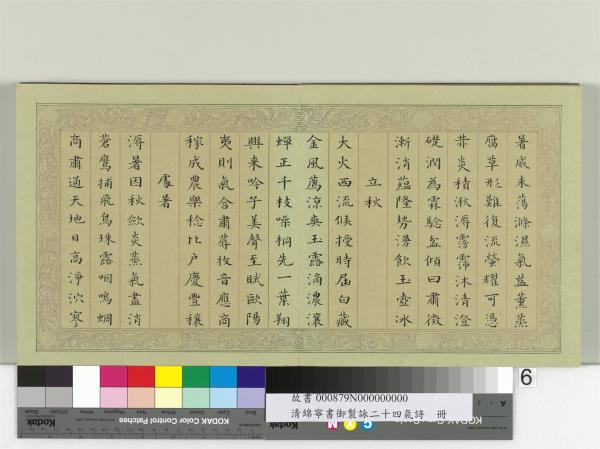 暑威未蕩滌濕氣益薰蒸
腐草形難復流螢耀可憑
炎積湫溽霈沐清澄
礎潤為霖驗盆傾曰肅徵
漸消蘊隆勢飲玉壺冰
立秋
大火西流候授時屆白藏
金風薦涼爽玉露滴濃瀼
蟬正千枝噪桐先一葉翔
興來吟子美聲至賦歐陽
夷則氣含肅蓐收音應商
稼成農樂稔比戶慶豐穰
處暑
溽暑因秋斂炎蒸氣盡消
蒼鷹捕飛鳥珠露咽鳴蜩
商肅通天地日高淨泬寥
6
故書 000879N000000000
清綿寧書御製詠二十四氣詩 冊
KODAK Color Control Patches
C Y M
A